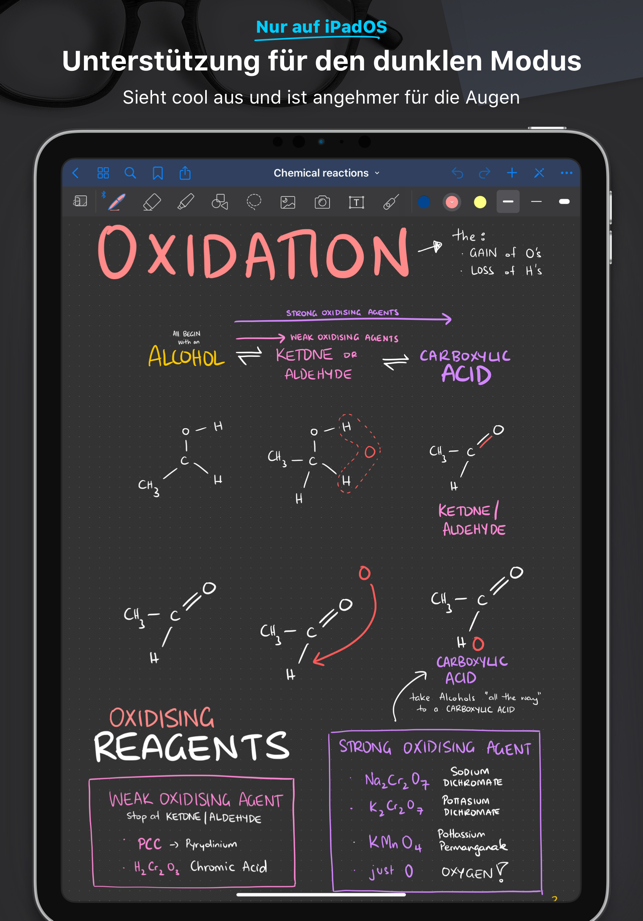 Nur auf iPadOS
Unterstützung für den dunklen Modus
Sieht cool aus und ist angehmer für die Augen
Chemical reactions
OXIDATION
the:
· GAIN of O's
· LOSS of H's
STRONG OXIDISING AGENTS
All BEGIN
with an
ALCOHOL
WEAK OXIDISING AGENTS
KETONE OR
ALDEHYDE
CARBOXYLIC
ACID
O — H
C
CH3
H
O
H
CH3 — C
O
H
H
O
CH3 — C
H
KETONE/
ALDEHYDE
O
CH3 — C
H
O
O
CH3 — C
H
O
CH3 — C
H O
CARBOXYLIC
ACID
take Alcohols "all the way"
to a CARBOXYLIC ACID
OXIDISING
REAGENTS
WEAK OXIDISING AGENT
Stop at KETONE/ALDEHYDE
· PCC → Pyrydinium
· H2Cr2O3 Chromic Acid
STRONG OXIDISING AGENT
· Na2Cr2O7 SODIUM
DICHROMATE
· K2Cr2O7 POTTASIUM
DICHROMATE
· KMnO4 Pottassium
Permanganate
· just O OXYGEN!